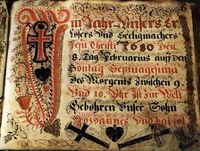 im Jahr Unsers Er,
lösers und Seeligmachers
Jesu Christi 1680 Den
8. Tag Februarius auf den
Sontag
Des Morgens Zwischen 9.
Und 10. Uhr Ist Zur Welt
Gebohren Unser Sohn
Johannes